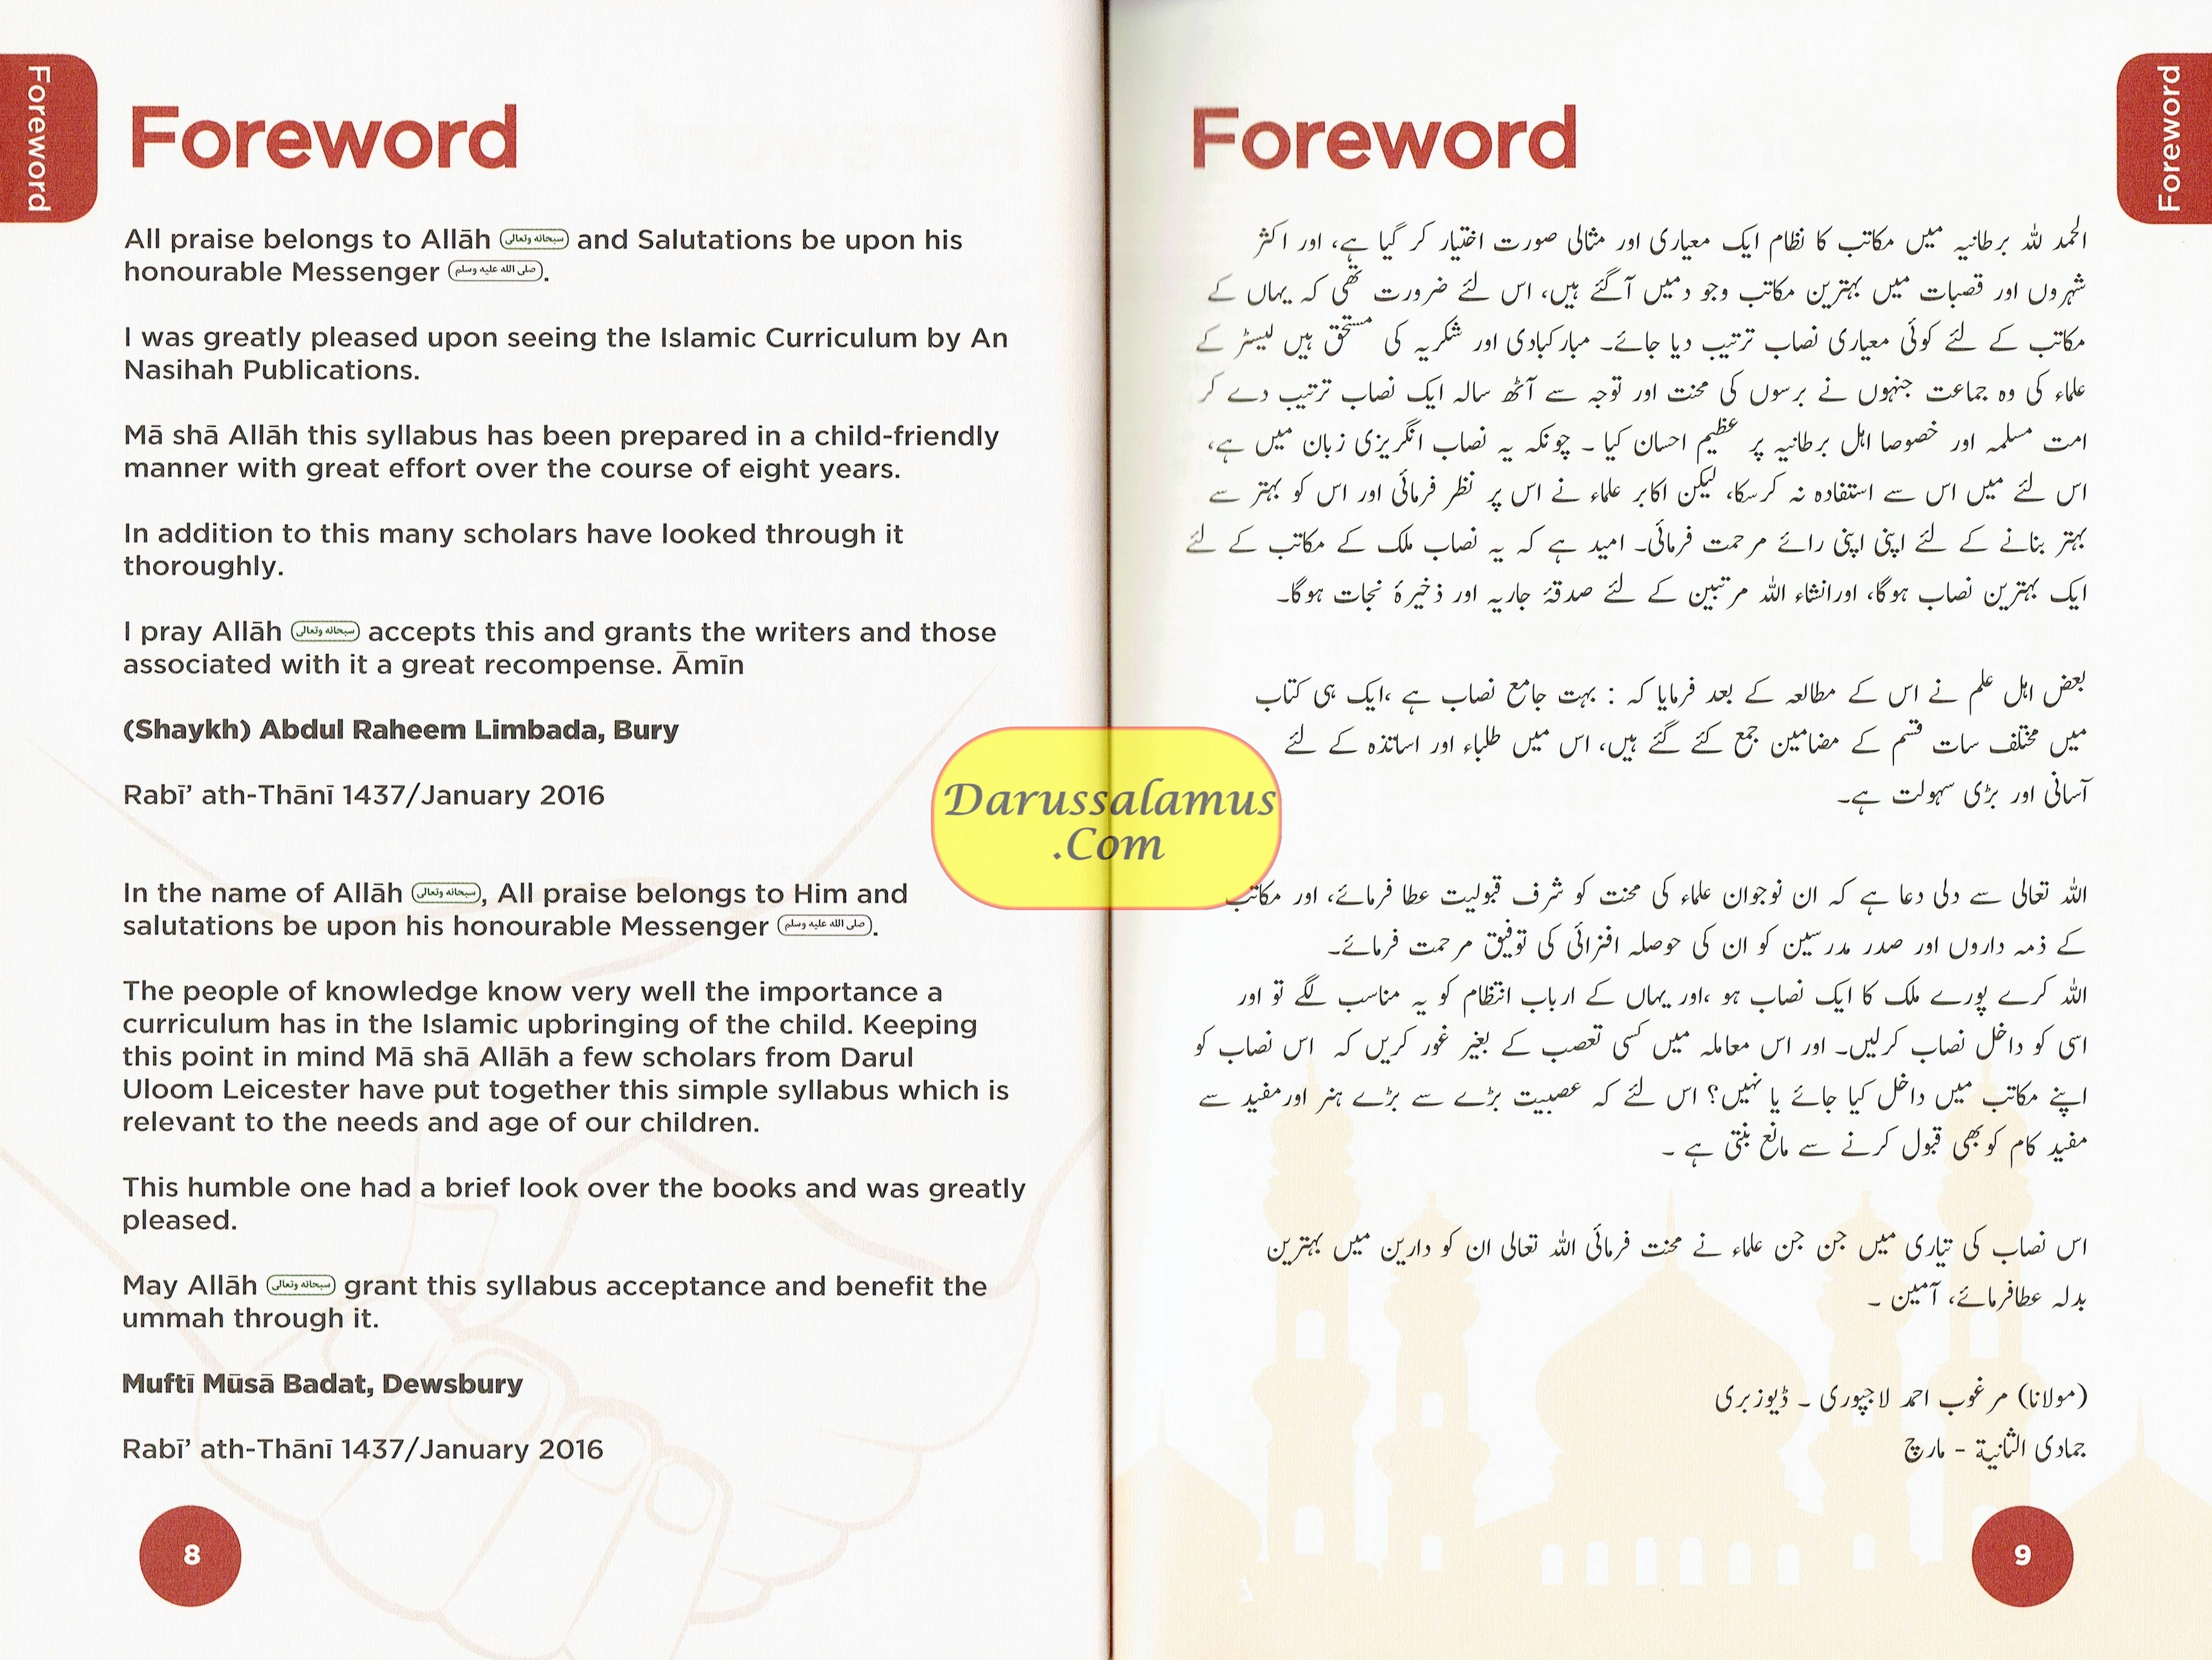 Foreword
Foreword
All praise belongs to Allāh سبحانه وتعالى and Salutations be upon his
honourable Messenger صلى الله عليه وسلم.
I was greatly pleased upon seeing the Islamic Curriculum by An
Nasihah Publications.
Mā shā Allāh this syllabus has been prepared in a child-friendly
manner with great effort over the course of eight years.
In addition to this many scholars have looked through it
thoroughly.
I pray Allāh سبحانه وتعالى accepts this and grants the writers and those
associated with it a great recompense. Āmīn
(Shaykh) Abdul Raheem Limbada, Bury
Rabī’ ath-Thānī 1437/January 2016
In the name of Allāh سبحانه وتعالى, All praise belongs to Him and
salutations be upon his honourable Messenger صلى الله عليه وسلم.
The people of knowledge know very well the importance a
curriculum has in the Islamic upbringing of the child. Keeping
this point in mind Mā shā Allāh a few scholars from Darul
Uloom Leicester have put together this simple syllabus which is
relevant to the needs and age of our children.
This humble one had a brief look over the books and was greatly
pleased.
May Allāh سبحانه وتعالى grant this syllabus acceptance and benefit the
ummah through it.
Muftī Mūsā Badat, Dewsbury
Rabī’ ath-Thānī 1437/January 2016
8
Darussalamus
.Com
Foreword
Foreword
الحمد للہ برطانیہ میں مکاتب کا نظام ایک معیاری اور مثالی صورت اختیار کر گیا ہے، اور اکثر
شہروں اور قصبات میں بہترین مکاتب وجو دمیں آگئے ہیں، اس لئے ضرورت تھی کہ یہاں کے
مکاتب کے لئے کوئی معیاری نصاب ترتیب دیا جائے۔ مبارکبادی اور شکریہ کی مستحق ہیں لیسٹر کے
علماء کی وہ جماعت جنہوں نے برسوں کی محنت اور توجہ سے آٹھ سالہ ایک نصاب ترتیب دے کر
امت مسلمہ اور خصوصا اہل برطانیہ پر عظیم احسان کیا ۔ چونکہ یہ نصاب انگریزی زبان میں ہے،
اس لئے میں اس سے استفادہ نہ کرسکا، لیکن اکابر علماء نے اس پر نظر فرمائی اور اس کو بہتر سے
بہتر بنانے کے لئے اپنی اپنی رائے مرحمت فرمائی۔ امید ہے کہ یہ نصاب ملک کے مکاتب کے لئے
ایک بہترین نصاب ہوگا، اورانشاء اللہ مرتبین کے لئے صدقۂ جاریہ اور ذخیرۂ نجات ہوگا۔
بعض اہل علم نے اس کے مطالعہ کے بعد فرمایا کہ : بہت جامع نصاب ہے ،ایک ہی کتاب
میں مختلف سات قسم کے مضامین جمع کئے گئے ہیں، اس میں طلباء اور اساتذہ کے لئے
آسانی اور بڑی سہولت ہے۔
اللہ تعالی سے دلی دعا ہے کہ ان نوجوان علماء کی محنت کو شرف قبولیت عطا فرمائے، اور مکاتب
کے ذمہ داروں اور صدر مدرسین کو ان کی حوصلہ افزائی کی توفیق مرحمت فرمائے۔
اللہ کرے پورے ملک کا ایک نصاب ہو ،اور یہاں کے ارباب انتظام کو یہ مناسب لگے تو اور
اسی کو داخل نصاب کرلیں۔ اور اس معاملہ میں کسی تعصب کے بغیر غور کریں کہ اس نصاب کو
اپنے مکاتب میں داخل کیا جائے یا نہیں؟ اس لئے کہ عصبیت بڑے سے بڑے ہنر اورمفید سے
مفید کام کوبھی قبول کرنے سے مانع بنتی ہے ۔
اس نصاب کی تیاری میں جن جن علماء نے محنت فرمائی اللہ تعالی ان کو دارین میں بہترین
بدلہ عطافرمائے، آمین ۔
(مولانا) مرغوب احمد لاجپوری ۔ ڈیوزبری
جمادی الثانیة - مارچ
9